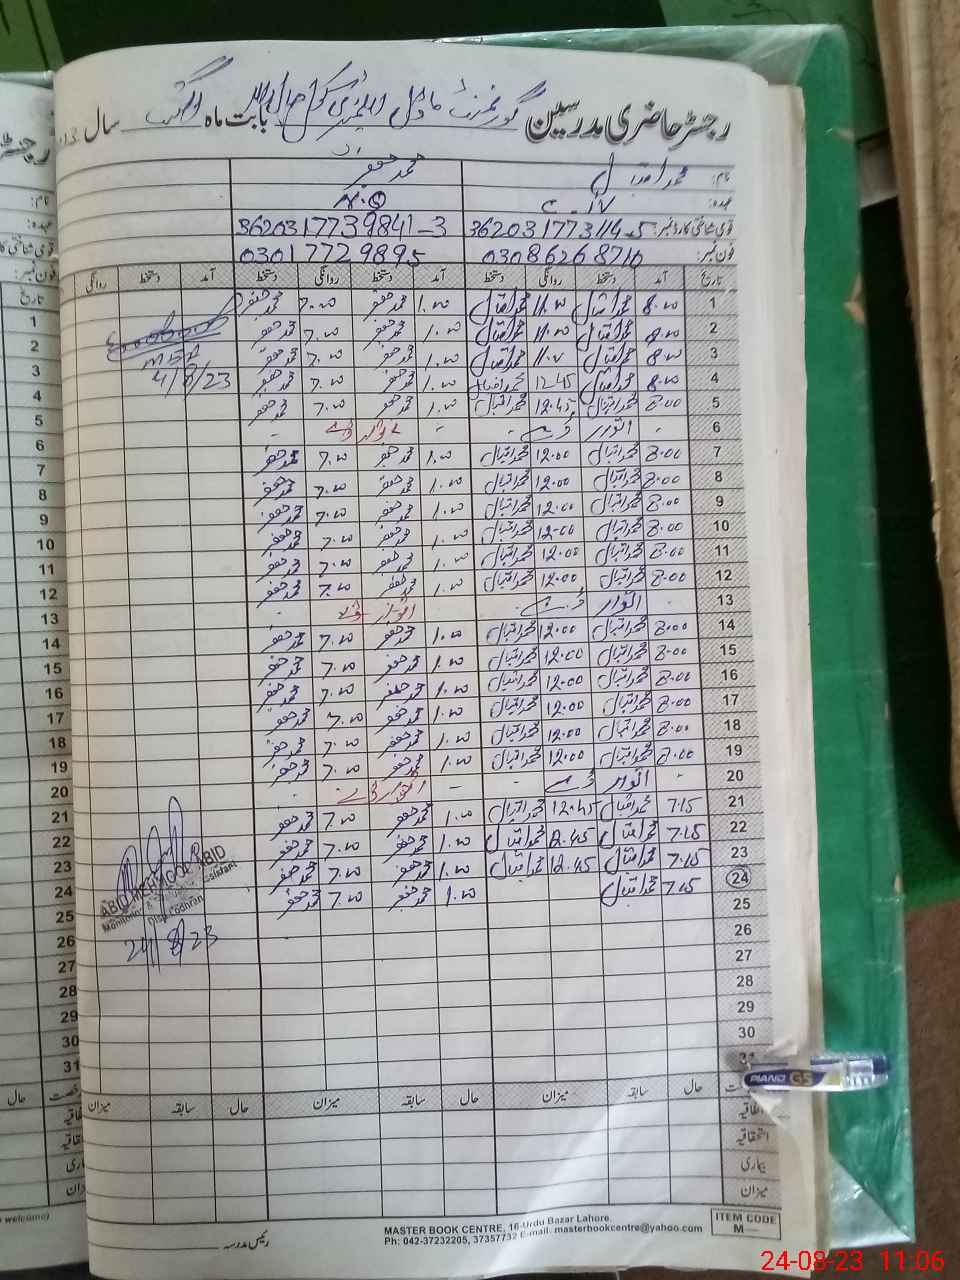 رجسٹر حاضری مدرسین گورنمنٹ ماڈل ایلیمنٹری سکول بابت ماہ اگست سال
نام: محمد اقبال محمد جعفر
عہدہ:
قومی شناختی کارڈ نمبر: 36203 1773114-5 36203 17739841-3
فون نمبر: 03086268710 03017729895
تاریخ آمد دستخط روانگی دستخط آمد دستخط روانگی دستخط آمد دستخط روانگی
1 8.00 محمد اقبال 11.00 محمد اقبال 1.00 محمد جعفر 7.00 محمد جعفر
2 8.00 محمد اقبال 11.00 محمد اقبال 1.00 محمد جعفر 7.00 محمد جعفر
3 8.00 محمد اقبال 11.00 محمد اقبال 1.00 محمد جعفر 7.00 محمد جعفر
4 8.00 محمد اقبال 12-45 محمد اقبال 1.00 محمد جعفر 7.00 محمد جعفر 4/8/23
5 8.00 محمد اقبال 12.45 محمد اقبال 1.00 محمد جعفر 7.00 محمد جعفر
6 - اتوار - -
7 8.00 محمد اقبال 12.00 محمد اقبال 1.00 محمد جعفر 7.00 محمد جعفر
8 8.00 محمد اقبال 12.00 محمد اقبال 1.00 محمد جعفر 7.00 محمد جعفر
9 8.00 محمد اقبال 12.00 محمد اقبال 1.00 محمد جعفر 7.00 محمد جعفر
10 8.00 محمد اقبال 12-00 محمد اقبال 1.00 محمد جعفر 7.00 محمد جعفر
11 8.00 محمد اقبال 12.00 محمد اقبال 1.00 محمد جعفر 7.00 محمد جعفر
12 8.00 محمد اقبال 12.00 محمد اقبال 1.00 محمد جعفر 7.00 محمد جعفر
13 - اتوار - اتوار
14 8.00 محمد اقبال 12.00 محمد اقبال 1.00 محمد جعفر 7.00 محمد جعفر
15 8.00 محمد اقبال 12.00 محمد اقبال 1.00 محمد جعفر 7.00 محمد جعفر
16 8.00 محمد اقبال 12.00 محمد اقبال 1.00 محمد جعفر 7.00 محمد جعفر
17 8.00 محمد اقبال 12.00 محمد اقبال 1.00 محمد جعفر 7.00 محمد جعفر
18 8.00 محمد اقبال 12.00 محمد اقبال 1.00 محمد جعفر 7.00 محمد جعفر
19 8.00 محمد اقبال 12.00 محمد اقبال 1.00 محمد جعفر 7.00 محمد جعفر
20 - اتوار - - اتوار
21 7.15 محمد اقبال 12.45 محمد اقبال 1.00 محمد جعفر 7.00 محمد جعفر
22 7.15 محمد اقبال 12.45 محمد اقبال 1.00 محمد جعفر 7.00 محمد جعفر
23 7.15 محمد اقبال 12.45 محمد اقبال 1.00 محمد جعفر 7.00 محمد جعفر
24 7.15 محمد اقبال 1.00 محمد جعفر 7.00 محمد جعفر
ABID MEHMOOD ABID
Assistant
Lodhran
24/8/23
25
26
27
28
29
30
31
حال سابقہ میزان حال سابقہ میزان حال سابقہ میزان
اتفاقیہ
استحقاقیہ
بیماری
میزان
رئیس مدرسہ
MASTER BOOK CENTRE, 16-Urdu Bazar Lahore.
Ph: 042-37232205, 37357732 E-mail: masterbookcentre@yahoo.com
ITEM CODE
M—
PIANO G5
تاریخ
1
2
3
4
5
6
7
8
9
10
11
12
13
14
15
16
17
18
19
20
21
22
23
24
25
26
27
28
29
30
31
24-08-23 11:06